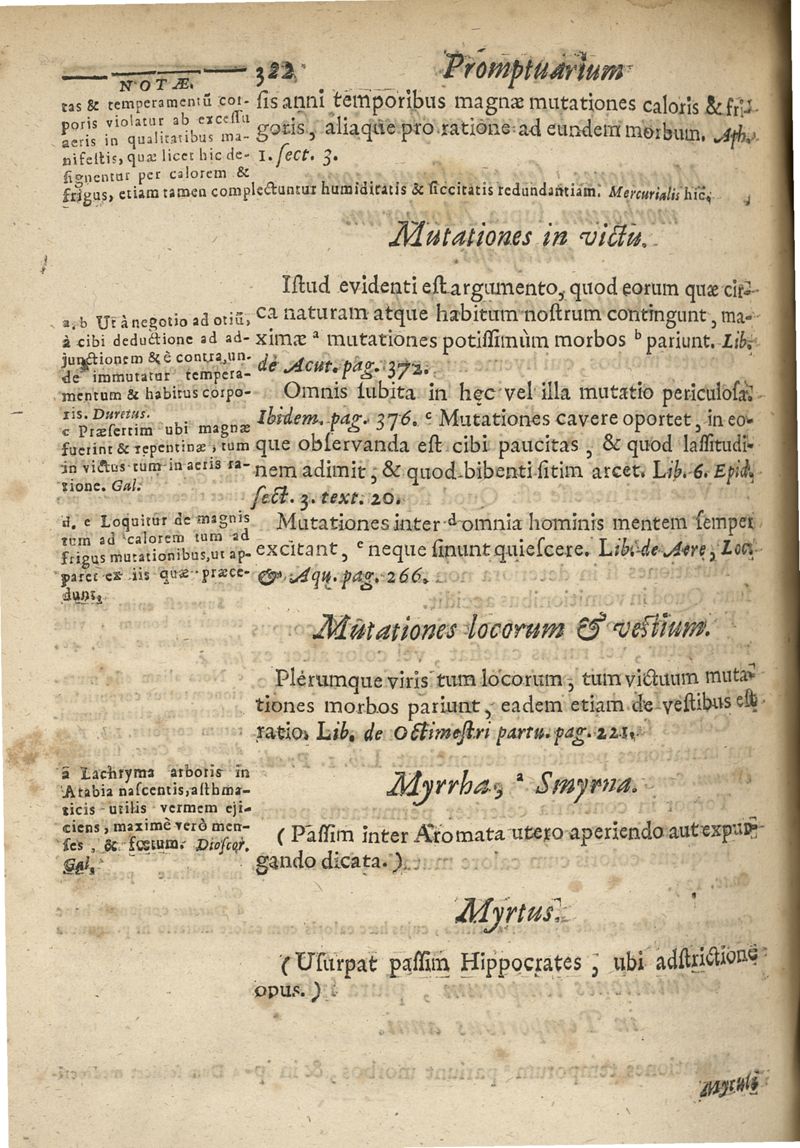 322 Promptuarium
NOTÆ.
tas & temperamentū cor-
poris violatur ab excessu
aeris in qualitatibus ma-
nifestis, quæ licet hic de-
signentur per calorem &
frigus, etiam tamen complectuntur humiditatis & siccitatis redundantiam. Mercurialis hîc.
sis anni temporibus magnæ mutationes caloris & fri-
goris, aliaque pro ratione ad eundem morbum. Aph.
1. sect. 3.
Mutationes in victu.
Istud evidenti est argumento, quod eorum quæ cir-
ca naturam atque habitum nostrum contingunt, ma-
ximæ a mutationes potissimùm morbos b pariunt. Lib.
de Acut. pag. 372.
Omnis subita in hęc vel illa mutatio periculosa.
Ibidem. pag. 376. c Mutationes cavere oportet, in eo-
que observanda est cibi paucitas, & quod lassitudi-
nem adimit, & quod bibenti sitim arcet. Lib. 6. Epid.
sect. 3. text. 20.
Mutationes inter d omnia hominis mentem semper
excitant, e neque sinunt quiescere. Lib. de Aere, Loc.
& Aqu. pag. 266.
a. b Ut à negotio ad otiū,
à cibi deductione ad ad-
junctionem & è contra, un-
de immutatur tempera-
mentum & habitus corpo-
ris. Duretus.
c Præsertim ubi magnæ
fuerint & repentinæ, tum
in victus tum in aeris ra-
tione. Gal.
d. e Loquitur de magnis
tum ad calorem tum ad
frigus mutationibus, ut ap-
paret ex iis quæ præce-
dunt.
Mutationes locorum & vestium.
Plerumque viris tum locorum, tum victuum muta-
tiones morbos pariunt, eadem etiam de vestibus est
ratio. Lib. de Octimestri partu. pag. 221.
Myrrha, a Smyrna.
(Passim inter Aromata utero aperiendo aut expur-
gando dicata.)
a Lachryma arboris in
Arabia nascentis, asthma-
ticis utilis vermem eji-
ciens, maximè verò men-
ses, & fœtum. Dioscor.
Gal.
Myrtus.
(Usurpat passim Hippocrates, ubi adstrictione
opus.)